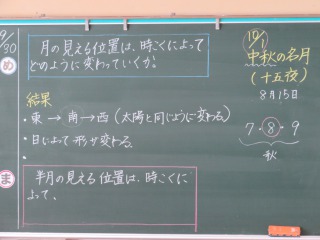 9/30
め
月の見える位置は、時こくによって
どのように変わっていくか。
結果
・東→南→西(太陽と同じように変わる)
・日によって形が変わる。
・
ま
半月の見える位置は、時こくに
よって、
10/1
中秋の名月
(十五夜)
8月15日
7・8・9
秋